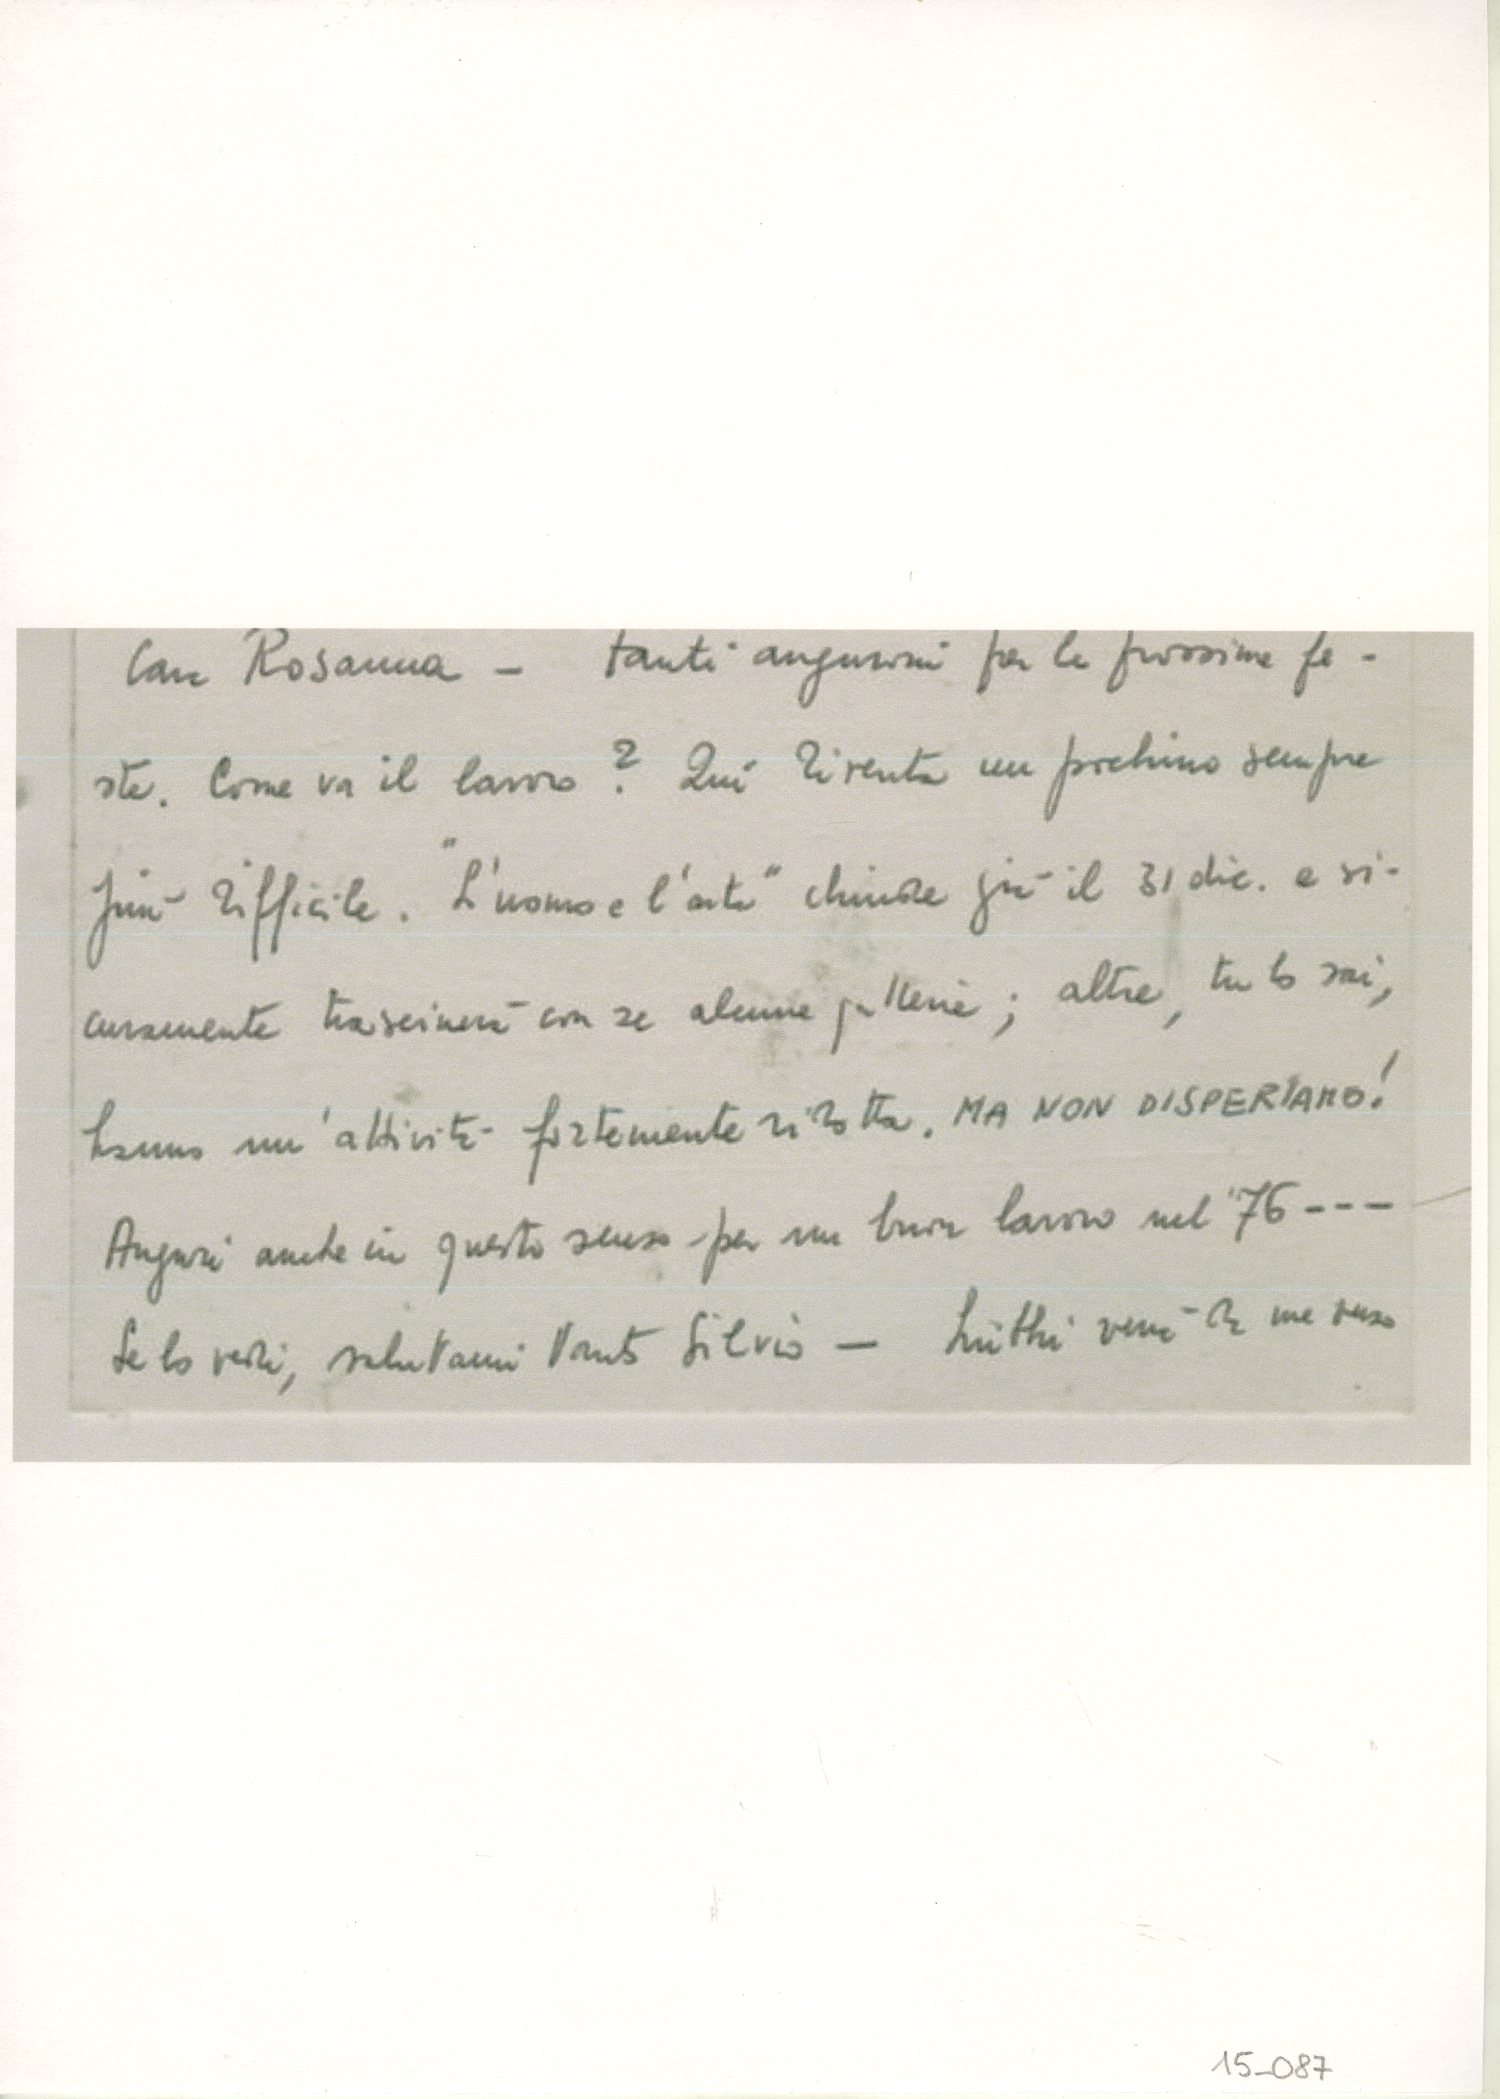 Cara Rosanna — tanti augurioni per le prossime fe-
ste. Come va il lavoro? Qui diventa un pochino sempre
più difficile. "L'uomo e l'arte" chiude già il 31 dic. e si-
curamente trascinerà con se alcune gallerie; altre, tu lo sai,
hanno un'attività fortemente ridotta. MA NON DISPERIAMO!
Auguri anche in questo senso per un buon lavoro nel '76 ---
Se lo vedi, salutami tanto Silvio — Lüthi verrà da me verso
15_087